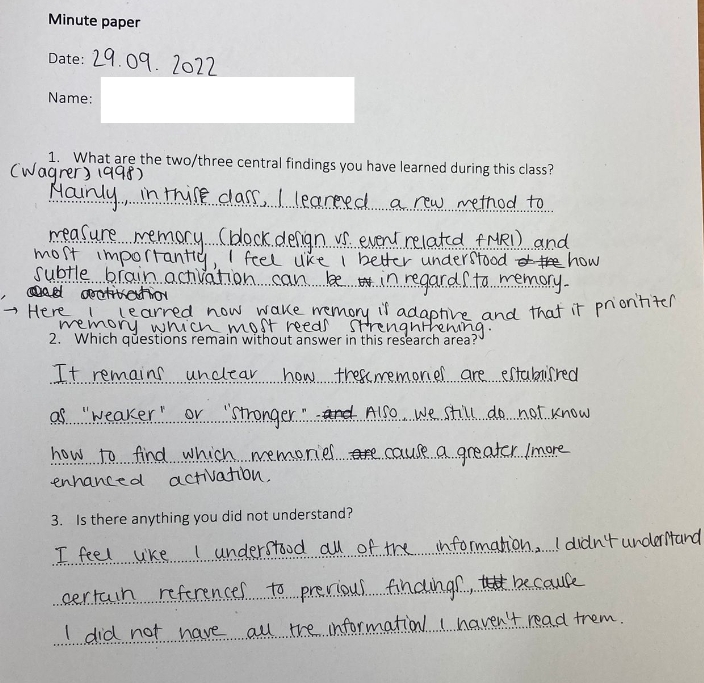 Minute paper
Date: 29.09. 2022
Name:
1. What are the two/three central findings you have learned during this class?
(Wagner, 1998)
Mainly, in this class, I learned a new method to
measure memory (block design vs. event related fMRI) and
most importantly, I feel like I better understood how
subtle brain activation can be in regards to memory.
→ Here I learned how wake memory is adaptive and that it prioritizes
memory which most needs strenghthening.
2. Which questions remain without answer in this research area?
It remains unclear how these memories are established
as "weaker" or "stronger". Also, we still do not know
how to find which memories cause a greater/more
enhanced activation.
3. Is there anything you did not understand?
I feel like I understood all of the information, I didn't understand
certain references to previous findings, because
I did not have all the information I haven't read them.